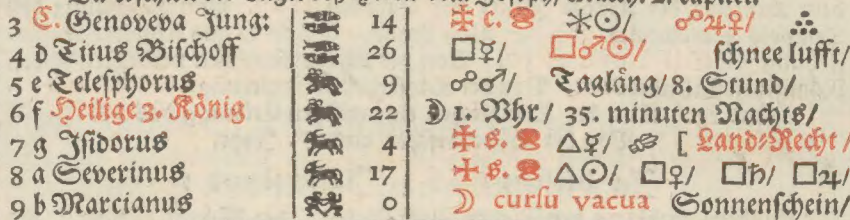 3 C. Genoveva Jung: 14 ✠ C. ⚹☉/ ☍♃♀/
4 d Titus Bischoff 26 □☿/ □♂☉/ schnee lufft/
5 e Telesphorus 9 ☍♂/ Tagläng/ 8. Stund/
6 f Heilige 3. König 22 ☽ 1. Vhr/ 35. minuten Nachts/
7 g Isidorus 4 ✠ S. △☿/ [ Land-Recht/
8 a Severinus 17 ✢ S. △☉/ □♀/ □♄/ □♃/
9 b Marcianus 0 ☽ cursu vacua Sonnenschein/